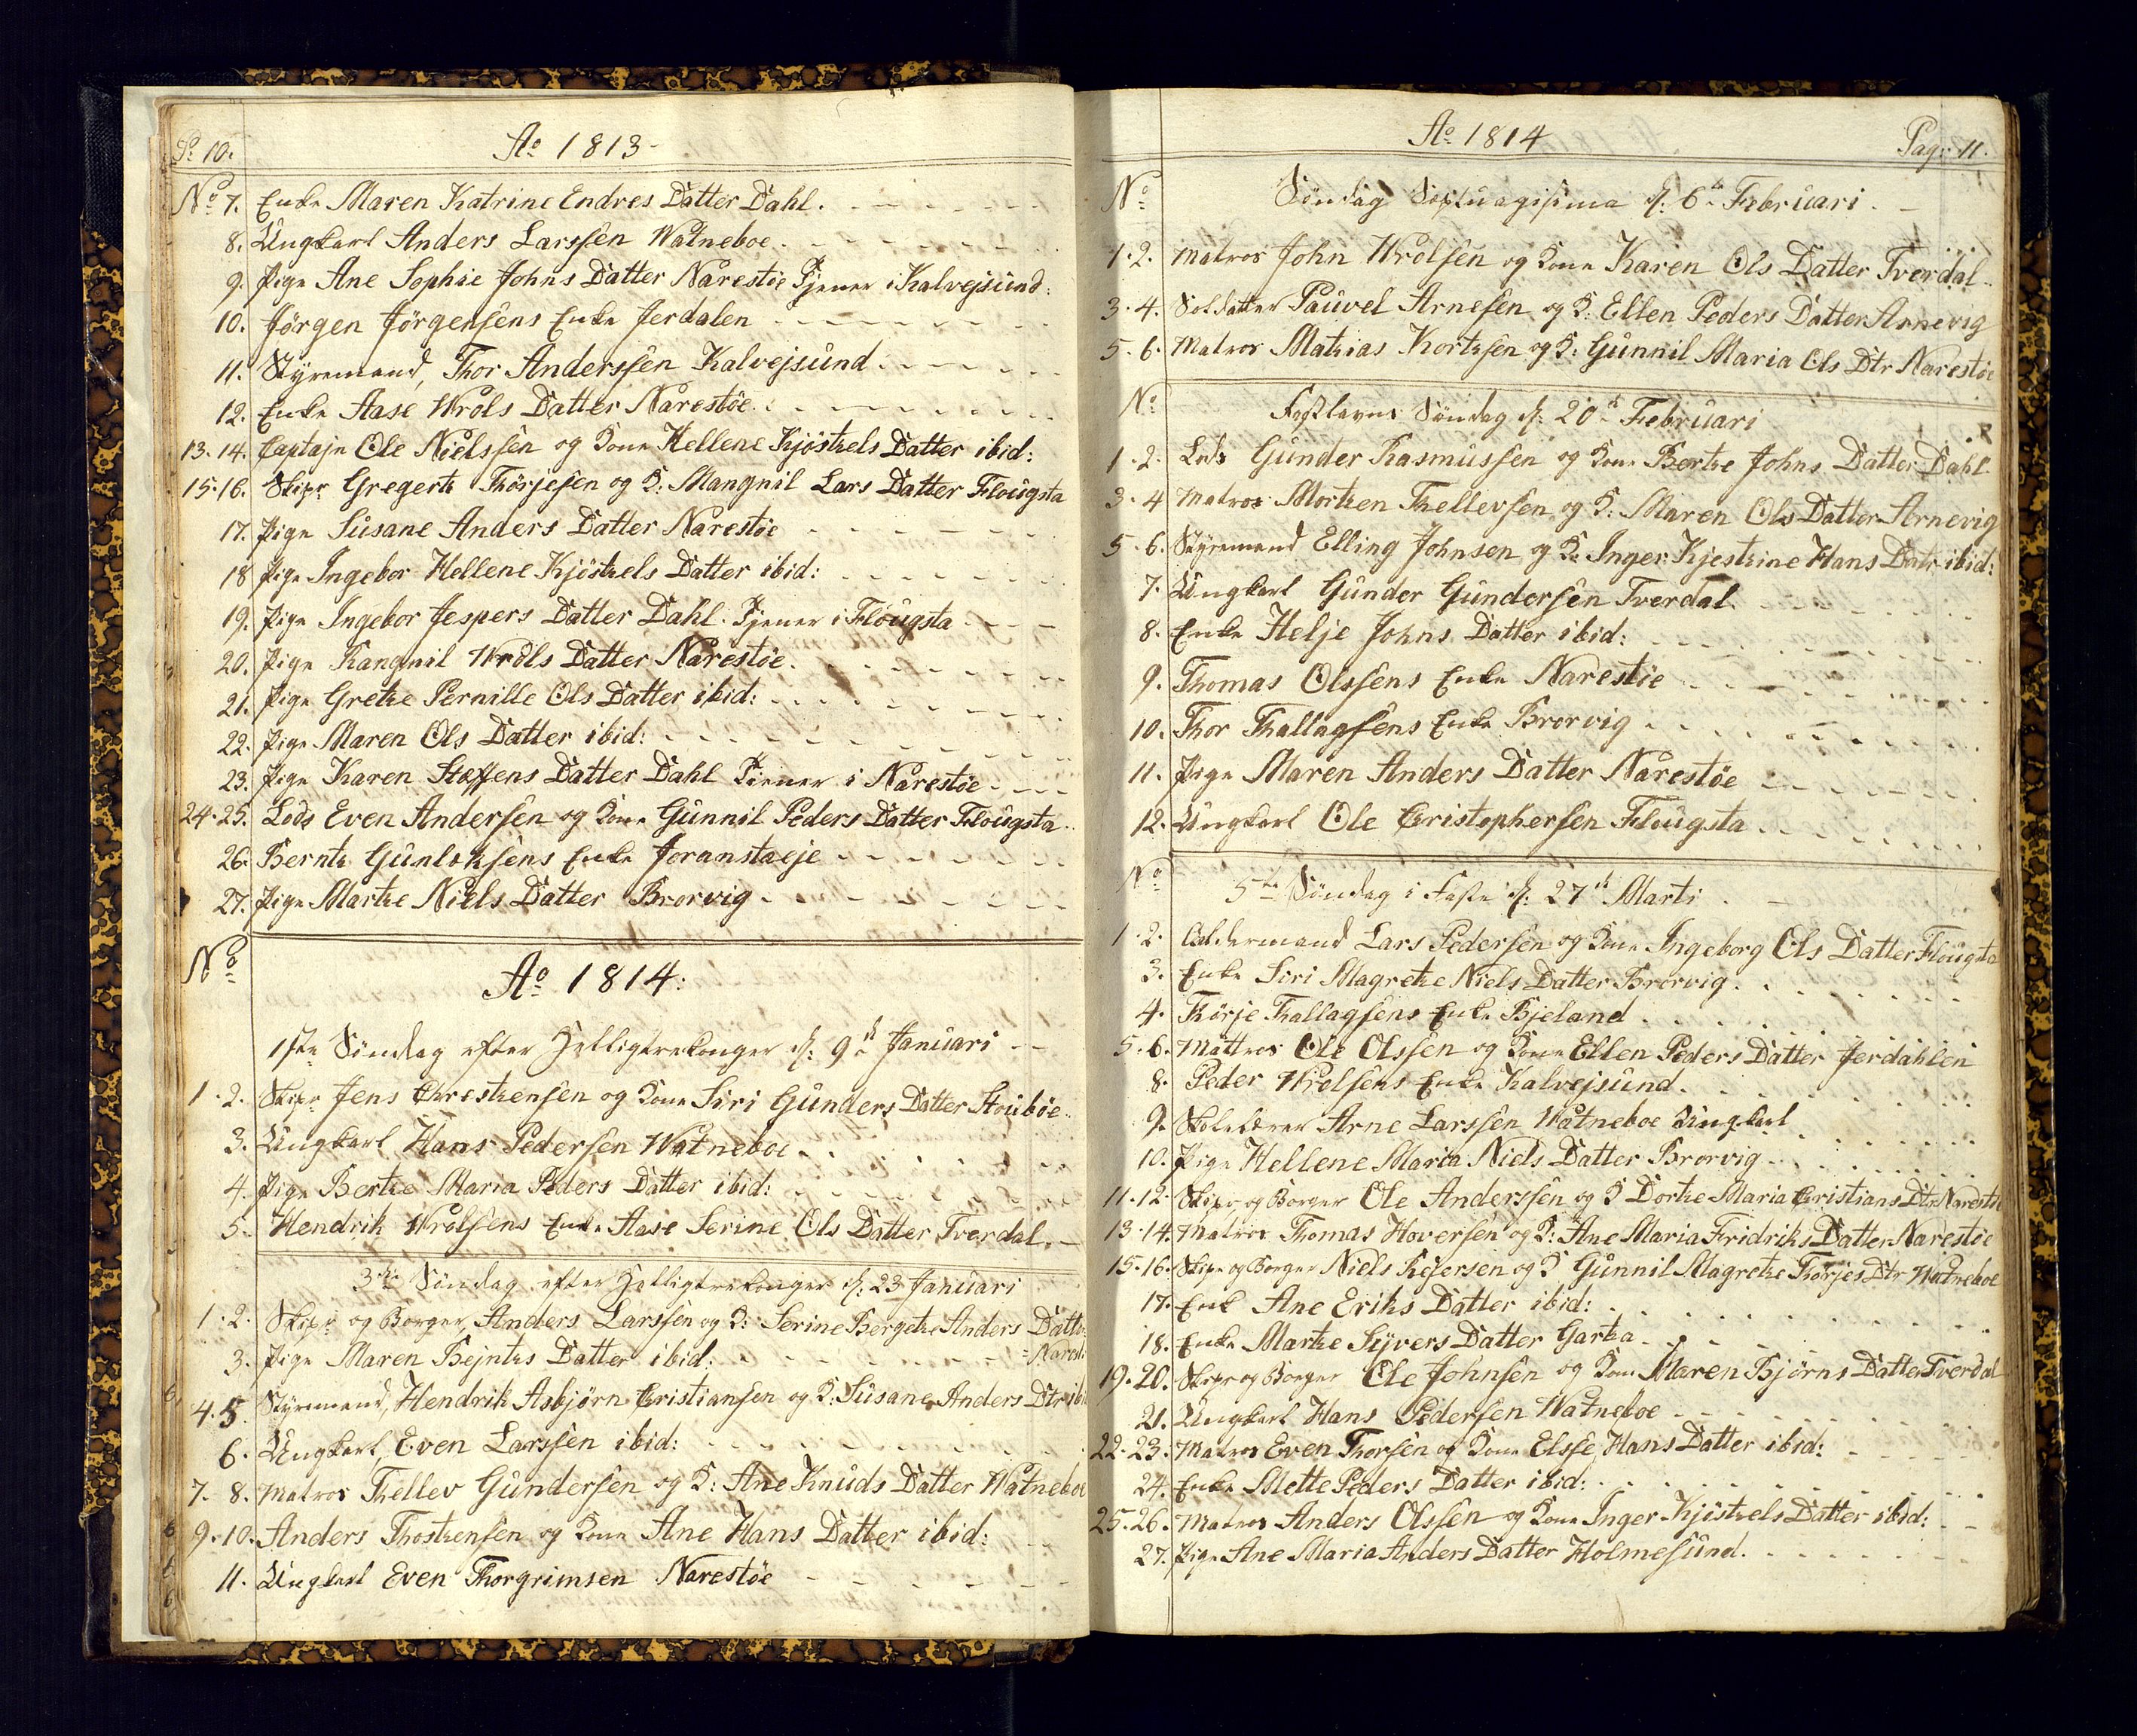 P: 10.
Ao 1813-
No 7. Enke Maren Katrine Endres Datter Dahl.
8. Ungkarl Anders Larssen Watneboe.
9. Pige Ane Sophie Johns Datter Narestöe Tjener i Kalvejsund:
10. Jörgen Jörgensens Enke Jerdalen
11. Styremand, Thor Anderssen Kalvejsund
12. Enke Aase Wrols Datter Narestöe.
13. 14. Captajn Ole Nielssen og Kone Hellene Kjöstels Datter ibid:
15. 16. Skipr Gregerts Thörjesen og K: Mangnil Lars Datter Flougsta
17. Pige Susane Anders Datter Narestöe
18 Pige Ingebor Hellene Kjöstels Datter ibid:
19. Pige Ingebor Jespers Datter Dahl. Tjener i Flougsta
20. Pige Rangnil Wrols Datter Narestöe.
21. Pige Grethe Pernille Ols Datter ibid:
22. Pige Maren Ols Datter ibid:
23. Pige Karen Stæffens Datter Dahl Tiener i Narestöe
24. 25. Lods Even Andersen og Kone Gunnil Peders Datter Flougsta.
26. Bernts Gunleksens Enke Joranstaeje
27. Pige Marthe Niels Datter Brorvig
No
Ao 1814:
1ste Söndag efter Helligtrekonger d: 9de Januari
1. 2. Skipr Jens Chrestensen og Kone Siri Gunders Datter Stouböe.
3. Ungkarl Hans Pedersen Watneboe
4. Pige Berthe Maria Peders Datter ibid:
5. Hendrik Wrolsens Enke Aase Serine Ols Datter Tverdal.
3die Söndag efter Helligtrekonger d: 23 Januari
1. 2. Skipr og Borger, Anders Larssen og K: Serine Bergethe Anders Datter
3. Pige Maren Bejnths Datter ibid: = Narest
4. 5. Styremand, Hendrik Asbjörn Cristiansen og K: Susane Anders Dtr ibi
6. Ungkarl, Even Larssen ibid:
7. 8. Matros Thellev Gundersen og K: Ane Knuds Datter Watneboe
9. 10. Anders Thostensen og Kone Ane Hans Datter ibid:
11. Ungkarl Even Thorgrimsen Narestöe
Ao 1814
Pag: 11.
No Söndag Septuagisima d: 6te Februari.
1. 2. Matros John Wrolsen og Kone Karen Ols Datter Tverdal
3. 4. Soldatter Pauvel Arnesen og K: Ellen Peders Datter Arnevig
5. 6. Matros Mathias Kortsen og K: Gunnil Maria Ols Dtr Narestöe
No Fastlavns Söndag d: 20de Februari
1. 2. Lods Gunder Rasmussen og Kone Berthe Johns Datter Dahl
3. 4 Matros Morthen Thellevsen og K: Maren Ols Datter Arnevig
5. 6. Styremand Elling Johnsen og K: Inger Kjestine Hans Datr ibid:
7. Ungkarl Gunder Gundersen Tverdal.
8. Enke Helje Johns Datter ibid:
9. Thomas Olssens Enke Narestöe
10. Thor Thallagsens Enke Brorvig
11. Pige Maren Anders Datter Narestöe
12. Ungkarl Ole Cristophersen Flougsta
No 5te Söndag i Faste d: 27de Marti
1. 2. Oldermand Lars Pedersen og Kone Ingeborg Ols Datter Flougsta
3. Enke Siri Magrethe Niels Datter Brorvig.
4. Thörje Thallagsens Enke Bjeland
5. 6. Mattros Ole Olssen og Kone Ellen Peders Datter Jerdahlen
8. Peder Wrolsens Enke Kalvejsund.
9. Skolelærer Arne Larssen Watneboe Ungkarl
10. Pige Hellene Maria Niels Datter Brorvig
11. 12. Skipr og Borger Ole Anderssen og K Dorthe Maria Cristians Dtr Narestö
13. 14. Matros Thomas Hoversen og K: Ane Maria Fridriks Datter Narestöe
15. 16. Skipr og Borger Niels Resersen og K Gunnil Magrethe Thorjes Dtr Watneboe
17. Enk Ane Eriks Datter ibid:
18. Enke Marthe Syvers Datter Gartha
19. 20. Skipr og Borger Ole Johnsen og Kone Maren Björns Datter Tverdal
21. Ungkarl Hans Pedersen Watneboe
22. 23. Matros Even Thorsen og Kone Elsse Hans Datter ibid:
24. Enke Mette Peders Datter ibid:
25. 26. Matros Anders Olssen og Kone Inger Kjöstels Datter ibid:
27. Pige Ane Maria Anders Datter Holmesund.